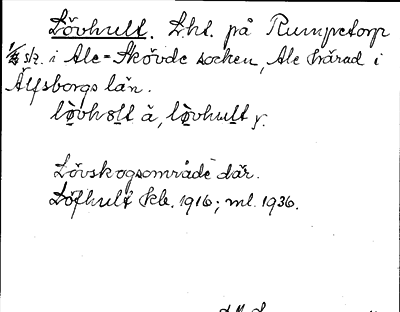 Lövhult. Lht. på Rumpetorp
1/4 s/2. i Ale-Skövde socken, Ale härad i
Älfsborgs län.
lövhult ä, lövhult y.
Lövskogsområde där.
Löfhult kb. 1916; ml. 1936.